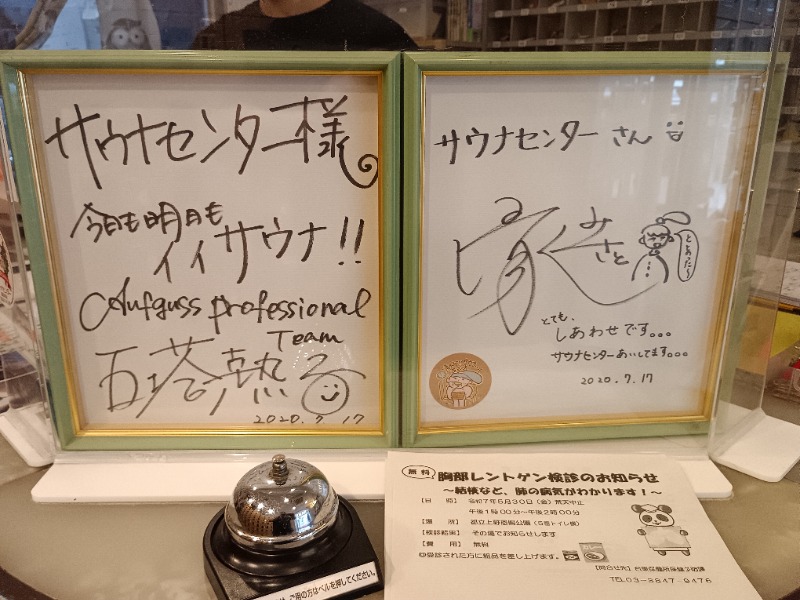 サウナセンター様
今日も明日も
イイサウナ!!
Aufguss professional
Team
五塔熱子
2020.7.17
サウナセンター さん
みさと
ととのった〜
とても、
しあわせです。。。
サウナセンターあいしてます。。。
2020.7.17
ご用の方はベルを押してください。
無料 胸部レントゲン検診のお知らせ
〜結核など、肺の病気がわかります!〜
【日 時】 令和7年5月30日(金) 荒天中止
午後1時00分〜午後2時00分
【場 所】 都立上野恩賜公園
【検診結果】 その場でお知らせします
【費 用】 無料
受診された方に粗品を差し上げます。
TEL03-3847-9476